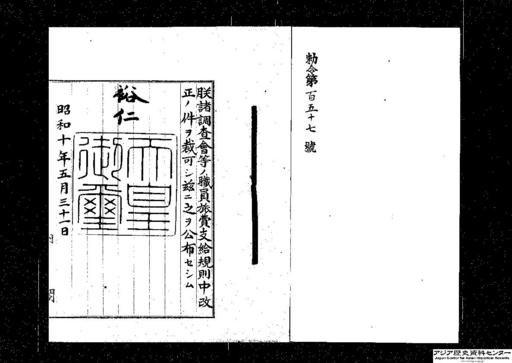 勅令第百五十七號
朕諸調査會等ノ職員旅費支給規則中改
正ノ件ヲ裁可シ茲ニ之ヲ公布セシム
裕仁
天皇御璽
昭和十年五月三十一日
アジア歴史資料センター
Japan Center for Asian Historical Records